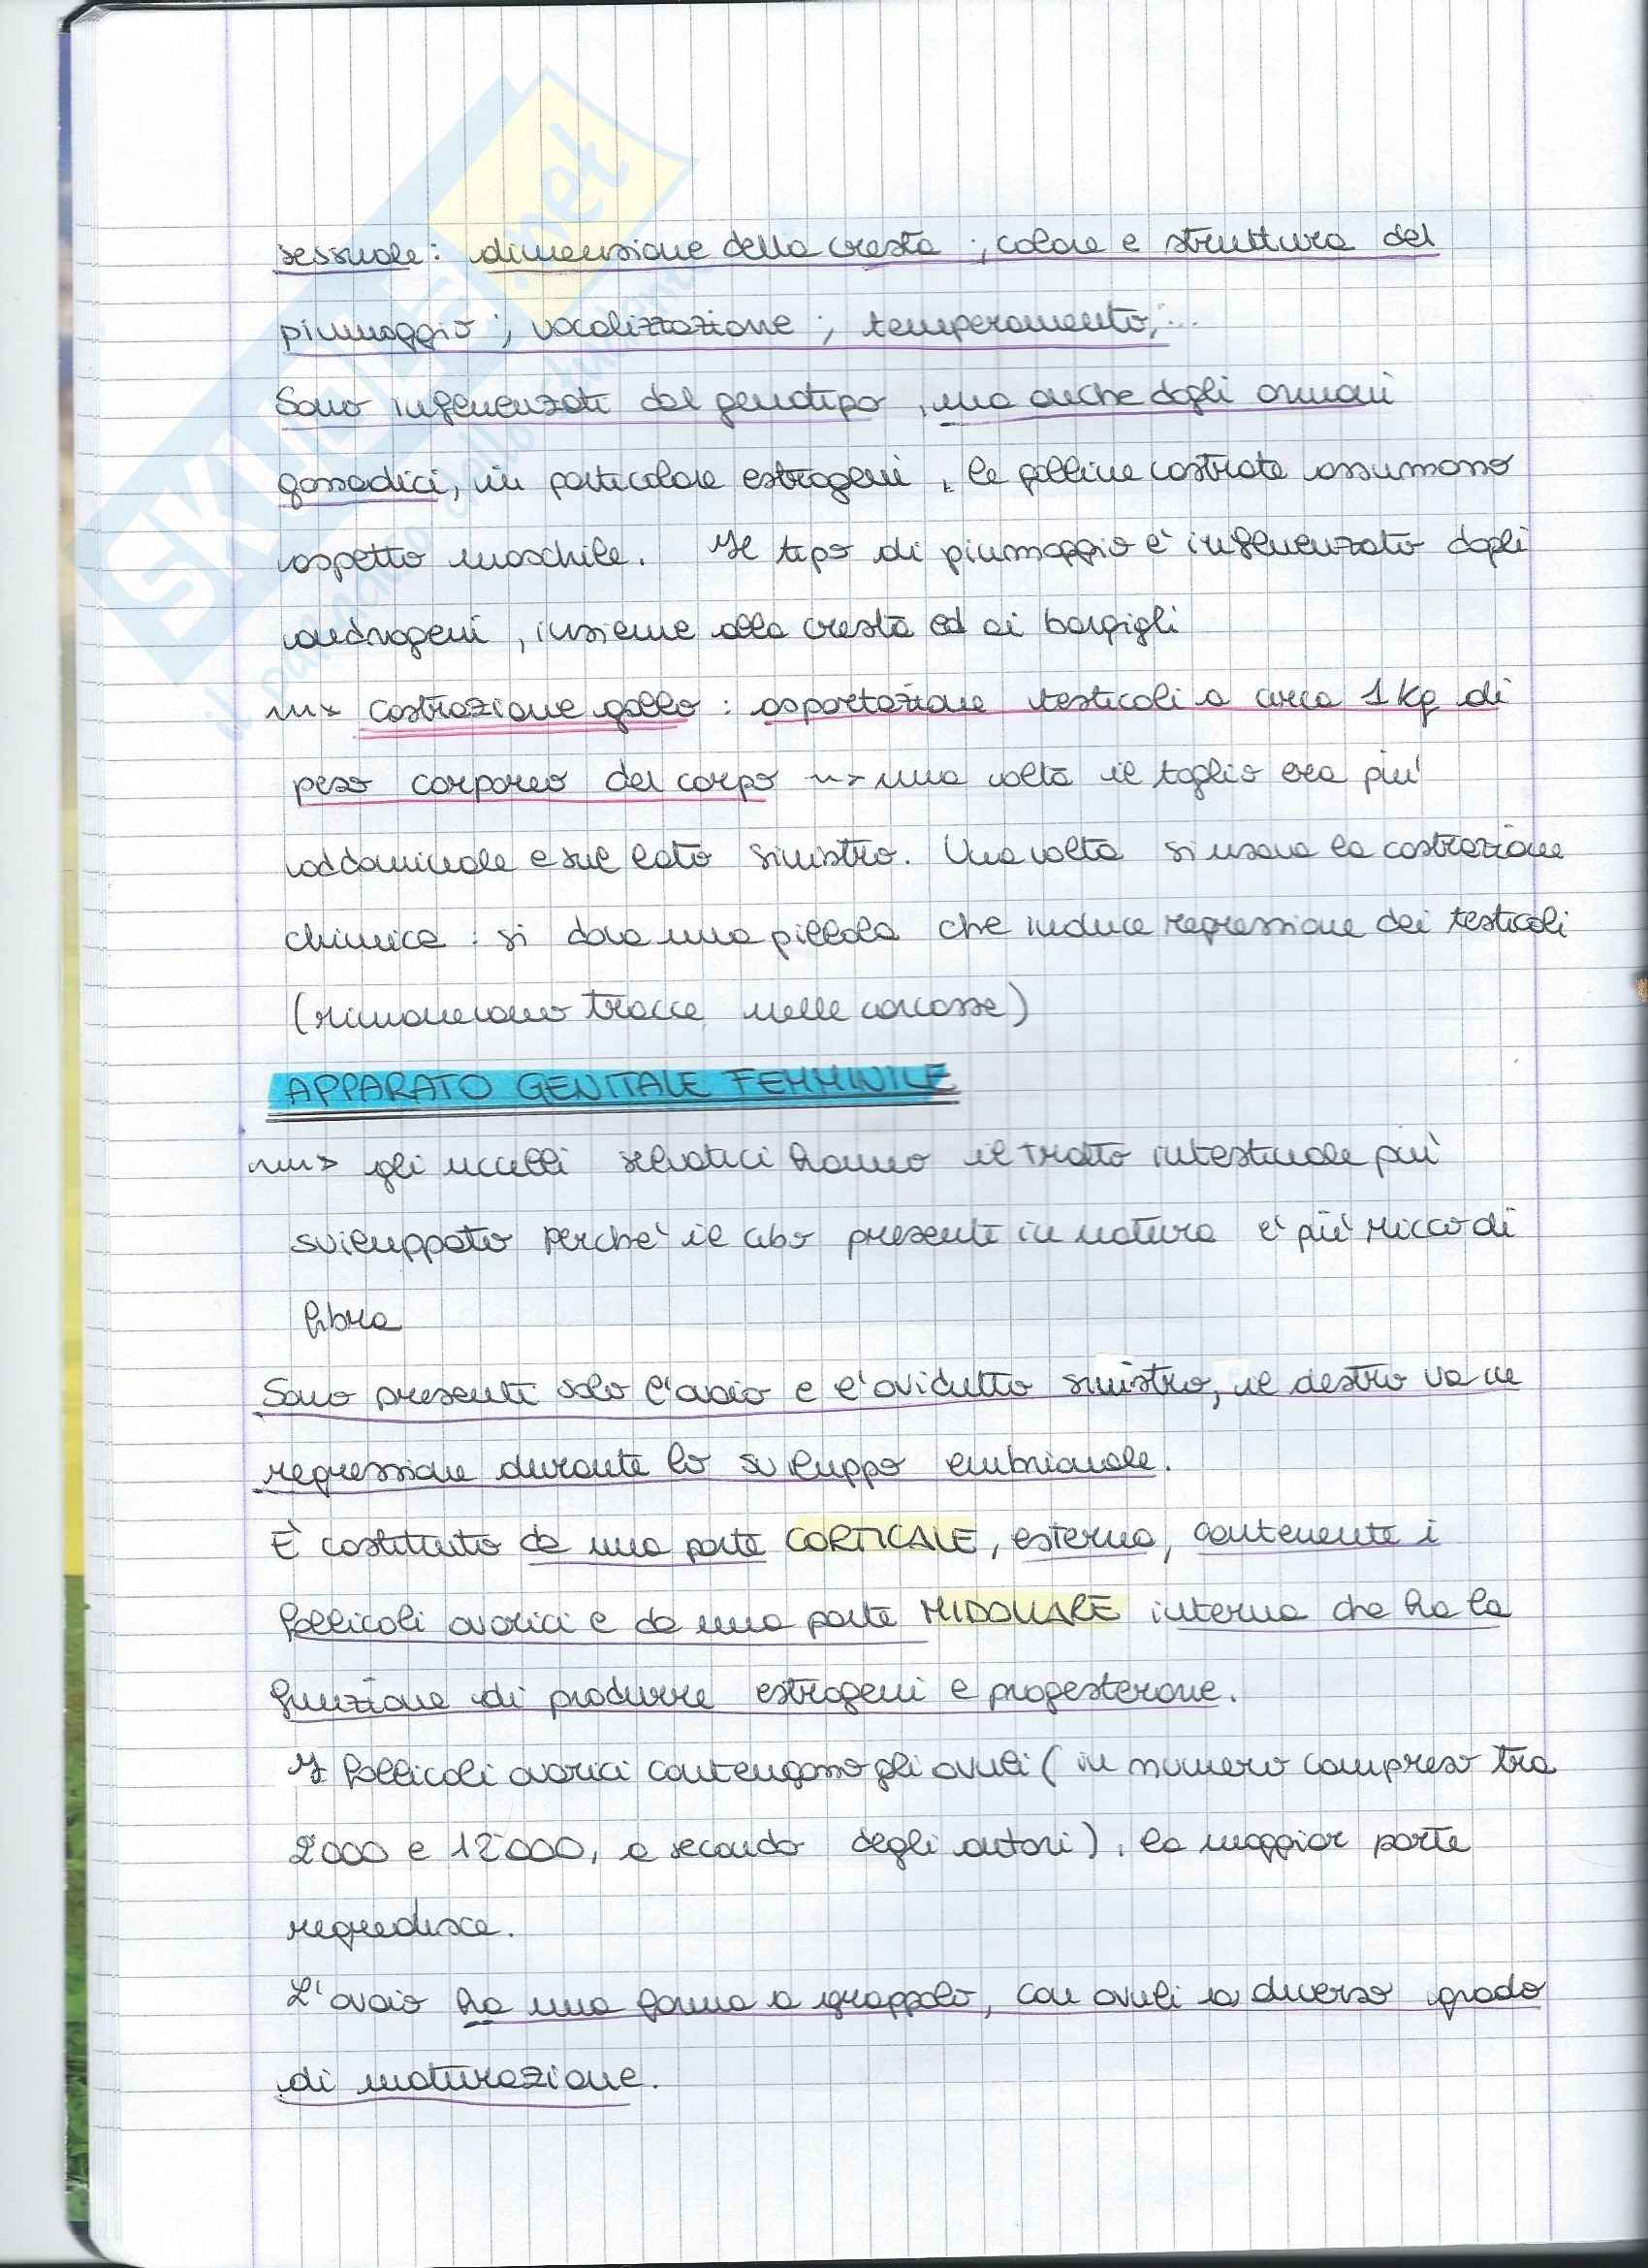 sessuale: dimensione della cresta; colore e struttura del
piumaggio; vocalizzazione; temperamento;...
Sono influenzati dal genotipo, ma anche dagli ormoni
gonadici, in particolare estrogeni, le galline castrate assumono
aspetto maschile. Il tipo di piumaggio è influenzato dagli
androgeni, insieme alla cresta ed ai bargigli
castrazione gallo: asportazione testicoli a circa 1 kg di
peso corporeo del corpo ~> una volta il taglio era più
addominale e sul lato sinistro. Una volta si usava la castrazione
chimica: si dava una pillola che induce regressione dei testicoli
(rimanevano tracce nelle carcasse)
APPARATO GENITALE FEMMINILE
~> gli uccelli selvatici hanno il tratto intestinale più
sviluppato perchè il cibo presente in natura è più ricco di
fibra
Sono presenti solo l'ovaio e l'ovidutto sinistro, il destro va in
regressione durante lo sviluppo embrionale.
È costituito da una parte CORTICALE, esterna, contenente i
follicoli ovarici e da una parte MIDOLLARE interna che ha la
funzione di produrre estrogeni e progesterone.
I follicoli ovarici contengono gli ovuli (in numero compreso tra
2000 e 12'000, a seconda degli autori), la maggior parte
regredisce.
L'ovaio ha una forma a grappolo, con ovuli a diverso grado
di maturazione.
SKUOLA.net
il paradiso dello studente